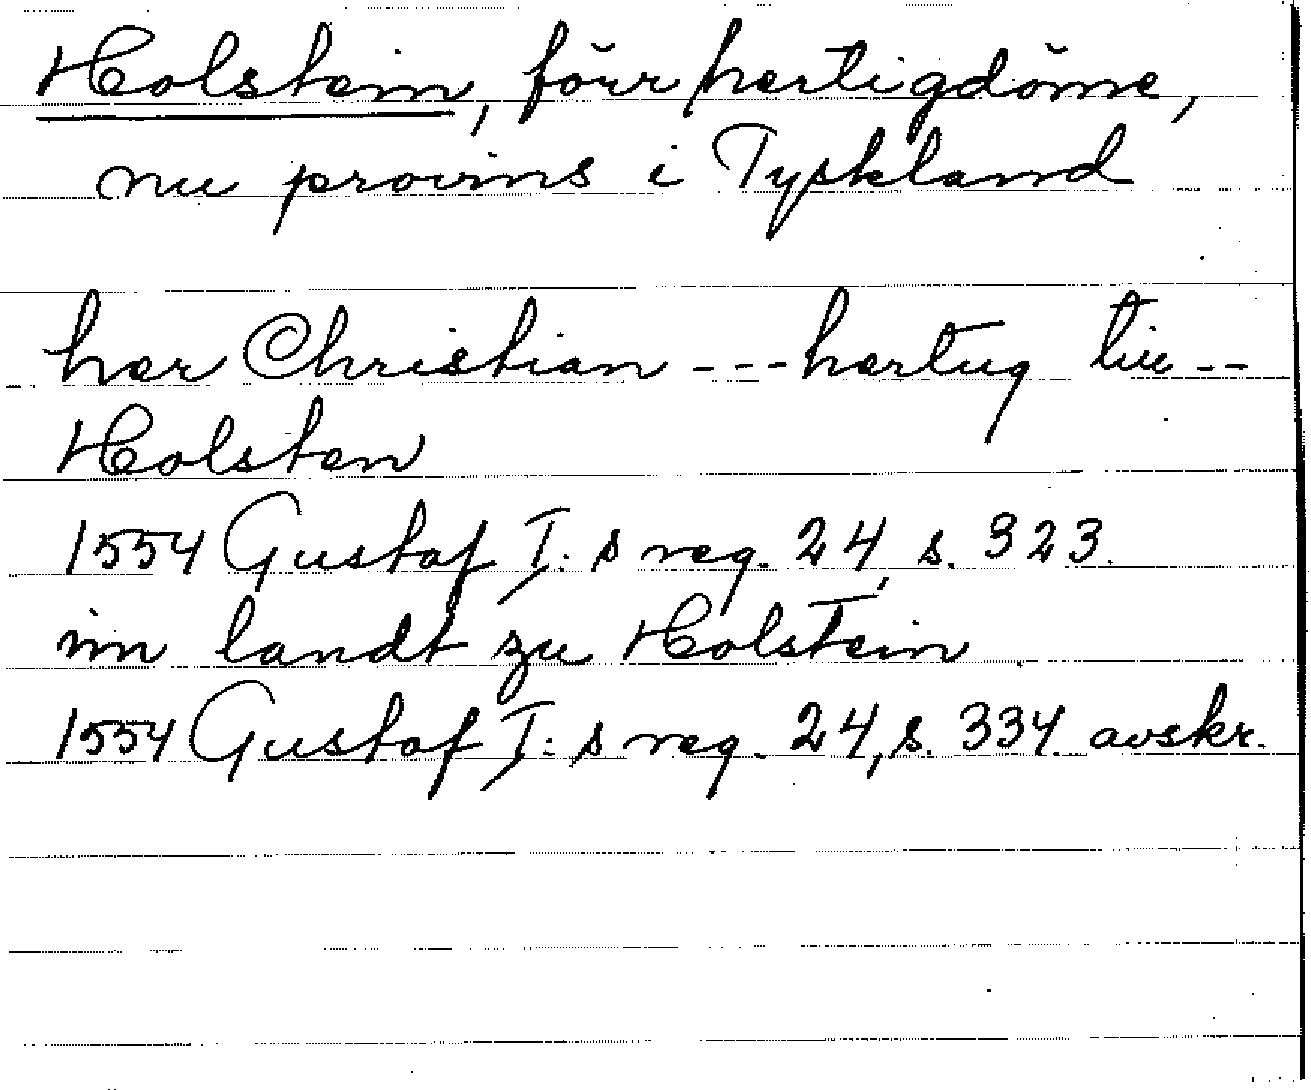 Holstein, förr hertigdöme,
nu provins i Tyskland
her Christian --- hertug till --
Holsten
1554 Gustaf I:s reg. 24, s. 323.
im landt zu Holstein
1554 Gustaf I:s reg. 24, s. 334. avskr.